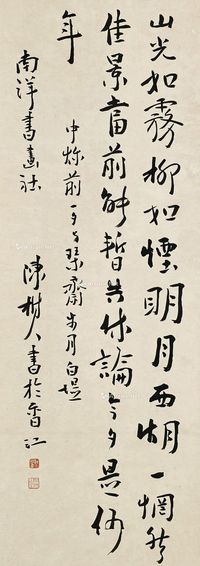 山光如霧柳如煙明月西湖一惘然
佳景當前能暫共休論今夕是何
年
中秋前一夕與琴齋步月白堤
南洋書畫社
陳樹人書於香江